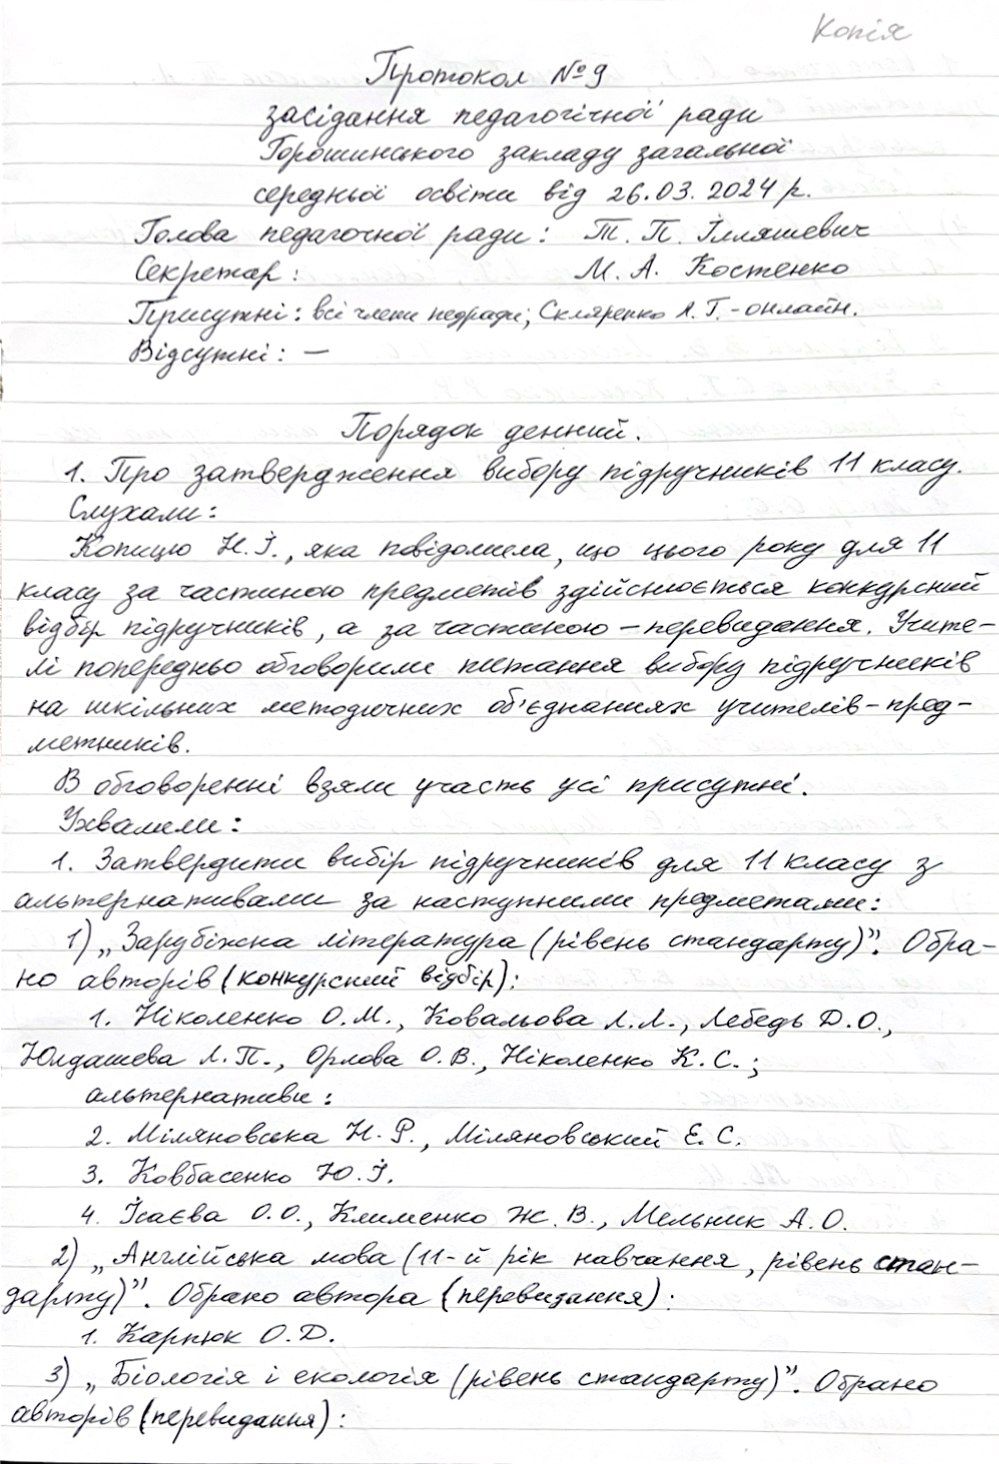 Копія
Протокол №9
засідання педагогічної ради
Горошинського закладу загальної
середньої освіти від 26.03.2024 р.
Голова педагочної ради: Т. П. Ілляшевич
Секретар: М. А. Костенко
Присутні: всі члени педради; Скляренко Л. Г. - онлайн.
Відсутні: —
Порядок денний.
1. Про затвердження вибору підручників 11 класу.
Слухали:
Копицю Н. І., яка повідомила, що цього року для 11
класу за частиною предметів здійснюється конкурсний
відбір підручників, а за частиною – перевидання. Учите-
лі попередньо обговорили питання вибору підручників
на шкільних методичних об'єднаннях учителів-пред-
метників.
В обговоренні взяли участь усі присутні.
Ухвалили:
1. Затвердити вибір підручників для 11 класу з
альтернативами за наступними предметами:
1) „Зарубіжна література (рівень стандарту)”. Обра-
но авторів (конкурсний відбір):
1. Ніколенко О. М., Ковальова Л. Л., Лебедь Д. О.,
Юлдашева Л. П., Орлова О. В., Ніколенко К. С.;
альтернативи:
2. Міляновська Н. Р., Міляновський Е. С.
3. Ковбасенко Ю. І.
4. Ісаєва О. О., Клименко Ж. В., Мельник А. О.
2) „Англійська мова (11-й рік навчання, рівень стан-
дарту)”. Обрано автора (перевидання):
1. Карпюк О. Д.
3) „Біологія і екологія (рівень стандарту)”. Обрано
авторів (перевидання):